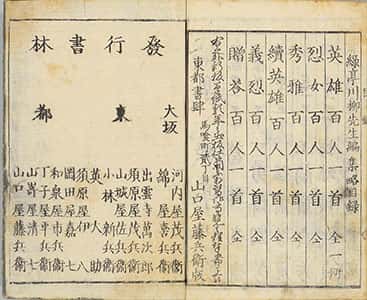 緑亭川柳先生編集略目録
英雄百人一首 全一冊
烈女百人一首 全
續英雄百人一首 全
秀雅百人一首 全
義烈百人一首 全
贈答百人一首 全
東都書肆 馬喰町 山口屋藤兵衛版
發行書林
大坂
河内屋茂兵衛
綿屋喜兵衛
東都
出雲寺萬次郎
須原屋茂兵衛
山城屋佐兵衛
小林新兵衛
英大助
須原屋伊八
岡田屋嘉七
和泉屋市兵衛
丁子屋平兵衛
山㟢屋清七
山口屋藤兵衛